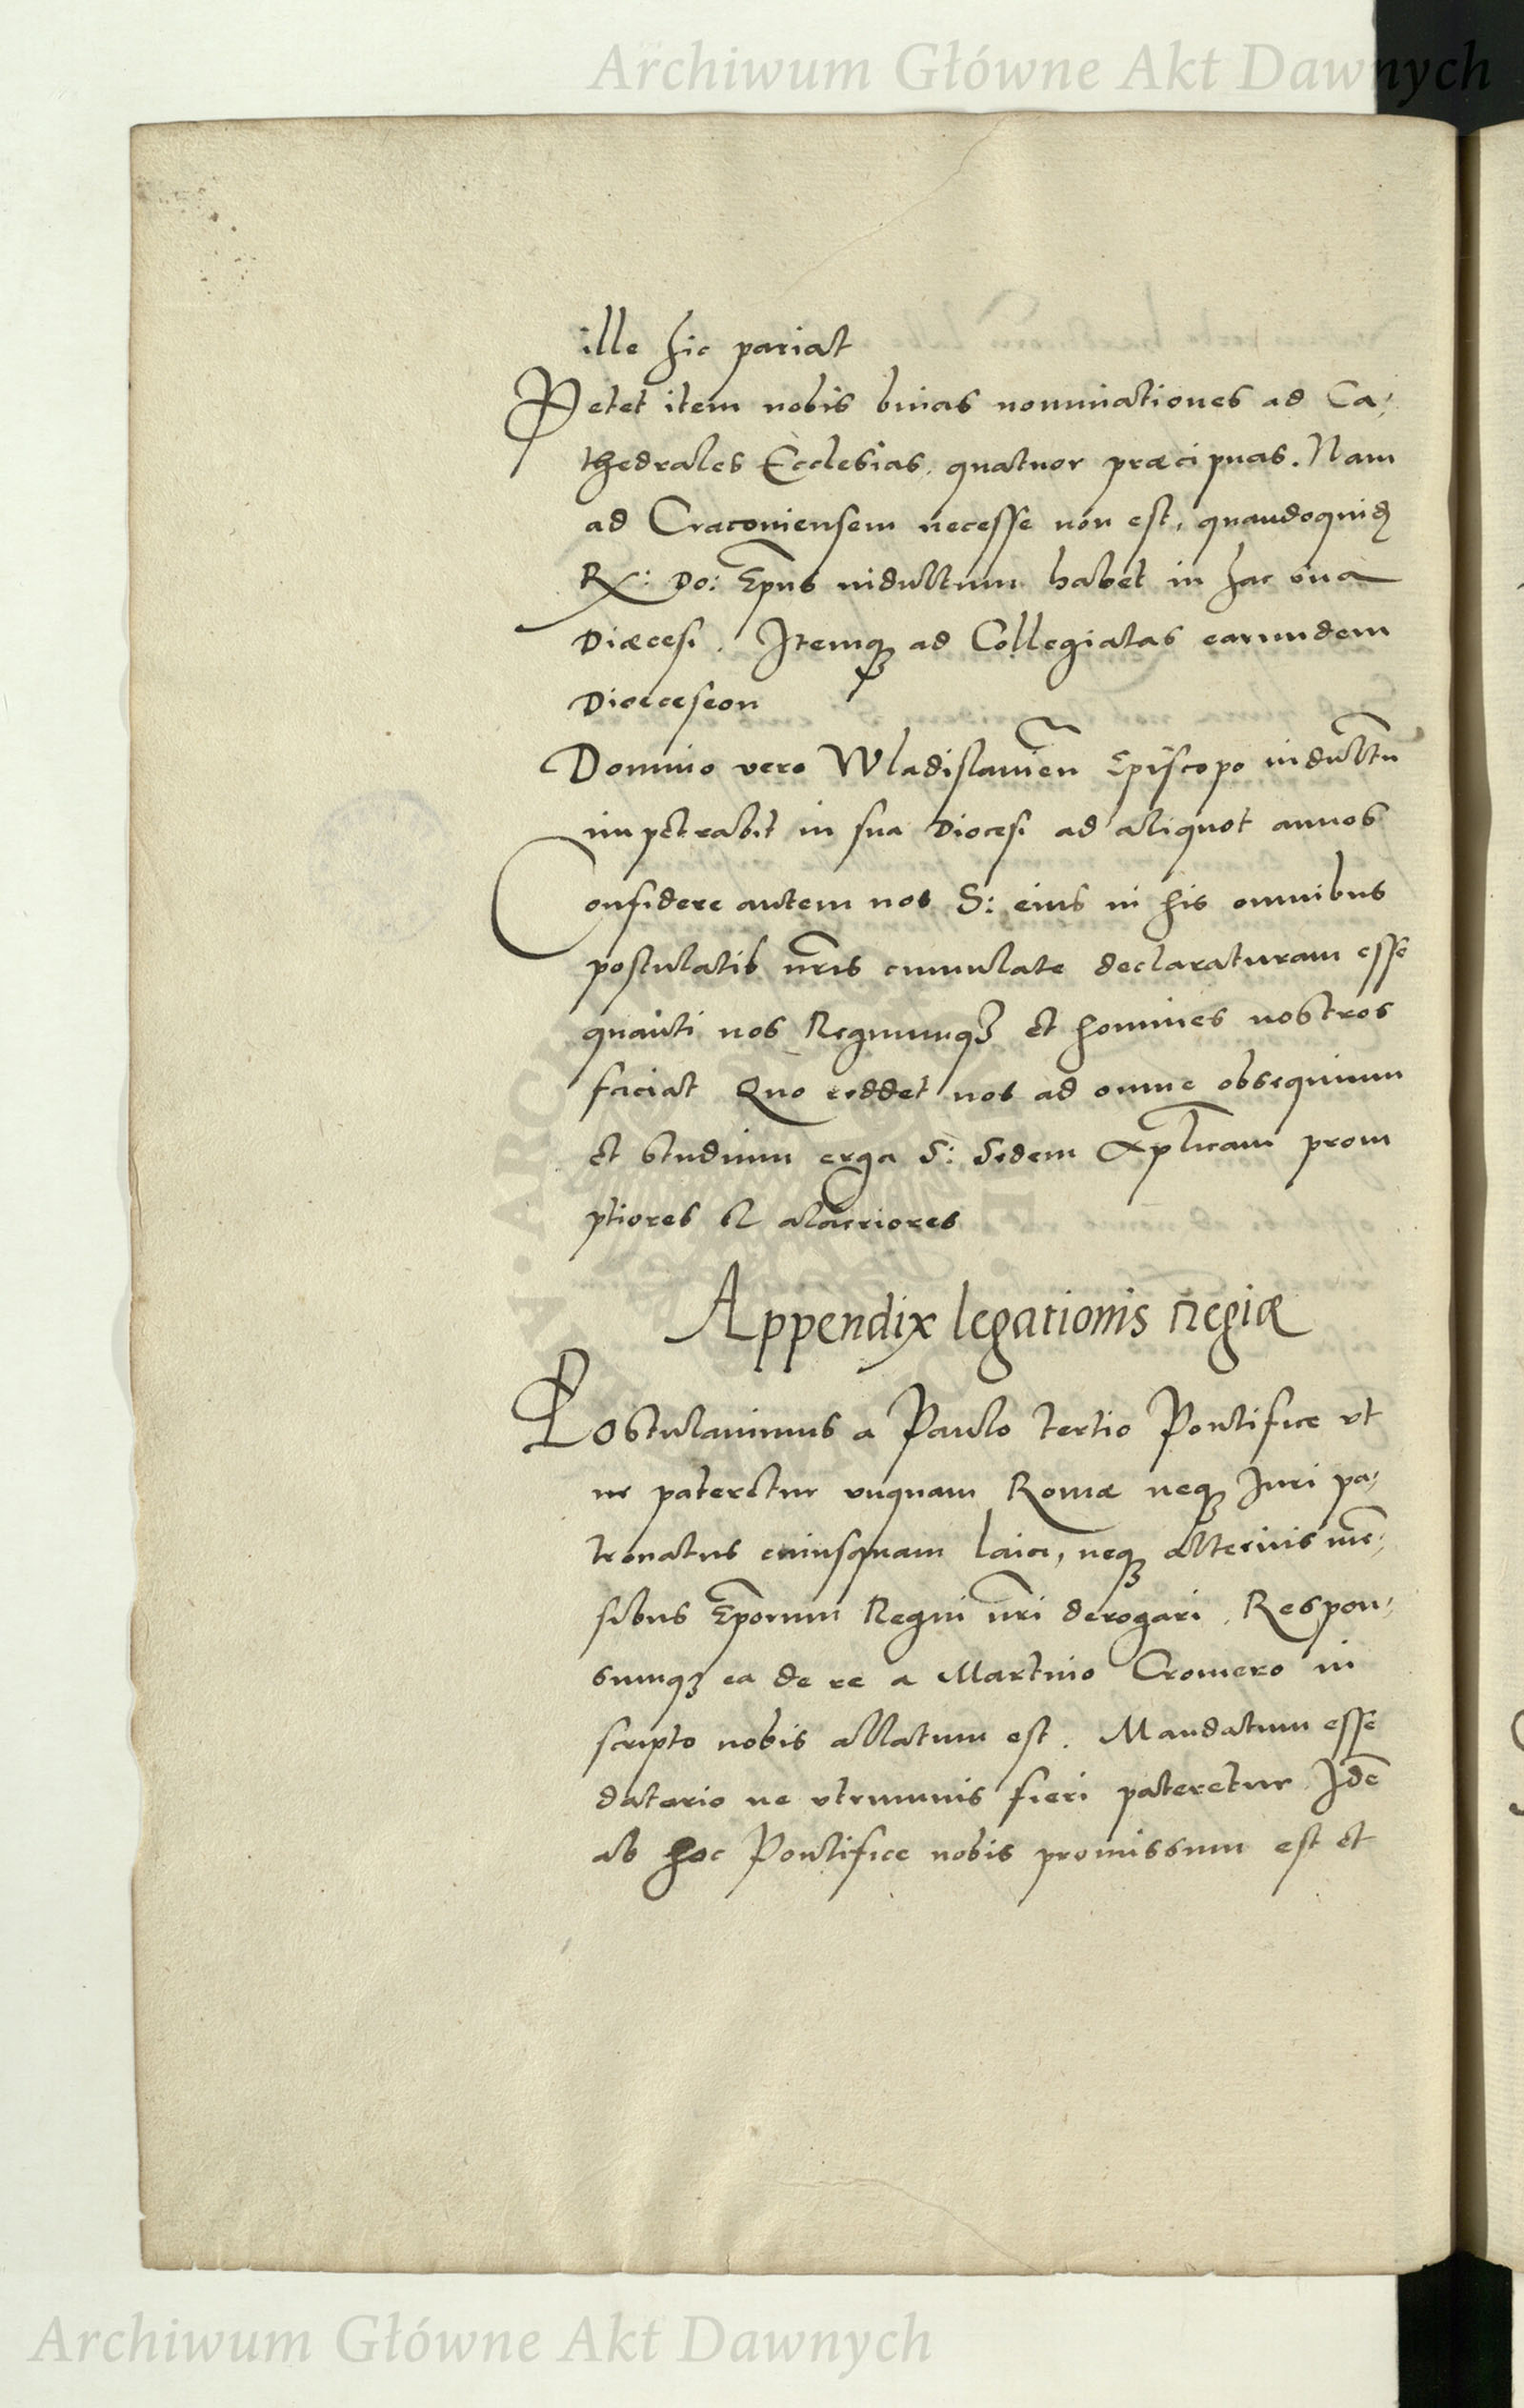 Archiwum Główne Akt Dawnych
ille hic pariat
Petet item nobis binas nominationes ad Ca,
thedrales Ecclesias, quatuor præcipuas. Nam
ad Cracoviensem necesse non est, quandoquidẽ
Rx: Do: Epũs indultum habet in hac sua
Diæcesi. Itemq́ꝫ ad Collegiatas earundem
Dioeceseon
Domino vero Wladislavien̄ Episcopo indultū
impetrabit in sua Diocesi ad aliquot annos
Confidere autem nos S: eius in his omnibus
postulatis nr̃is cumulate declaraturam esse
quanti nos Regnumqꝫ et homines nostros
faciat Quo reddet nos ad omne obsequium
et studium erga S: Sedem Apl̃icam prom
ptiores et alacriores
Appendix legationis Regiæ
Postulavimus a Paulo tertio Pontifice vt
ne pateretur vnquam Romæ neqꝫ Juri pa,
tronatus cuiusquam laici, neqꝫ alternis mẽ,
sibus Ep̃orum Regni nr̃i derogari. Respon,
sumqꝫ ea de re a Martino Cromero in
scripto nobis allatum est. Mandatum esse
datario ne vtrumvis fieri pateretur Idẽ
ab hoc Pontifice nobis promissum est et
Archiwum Główne Akt Dawnych